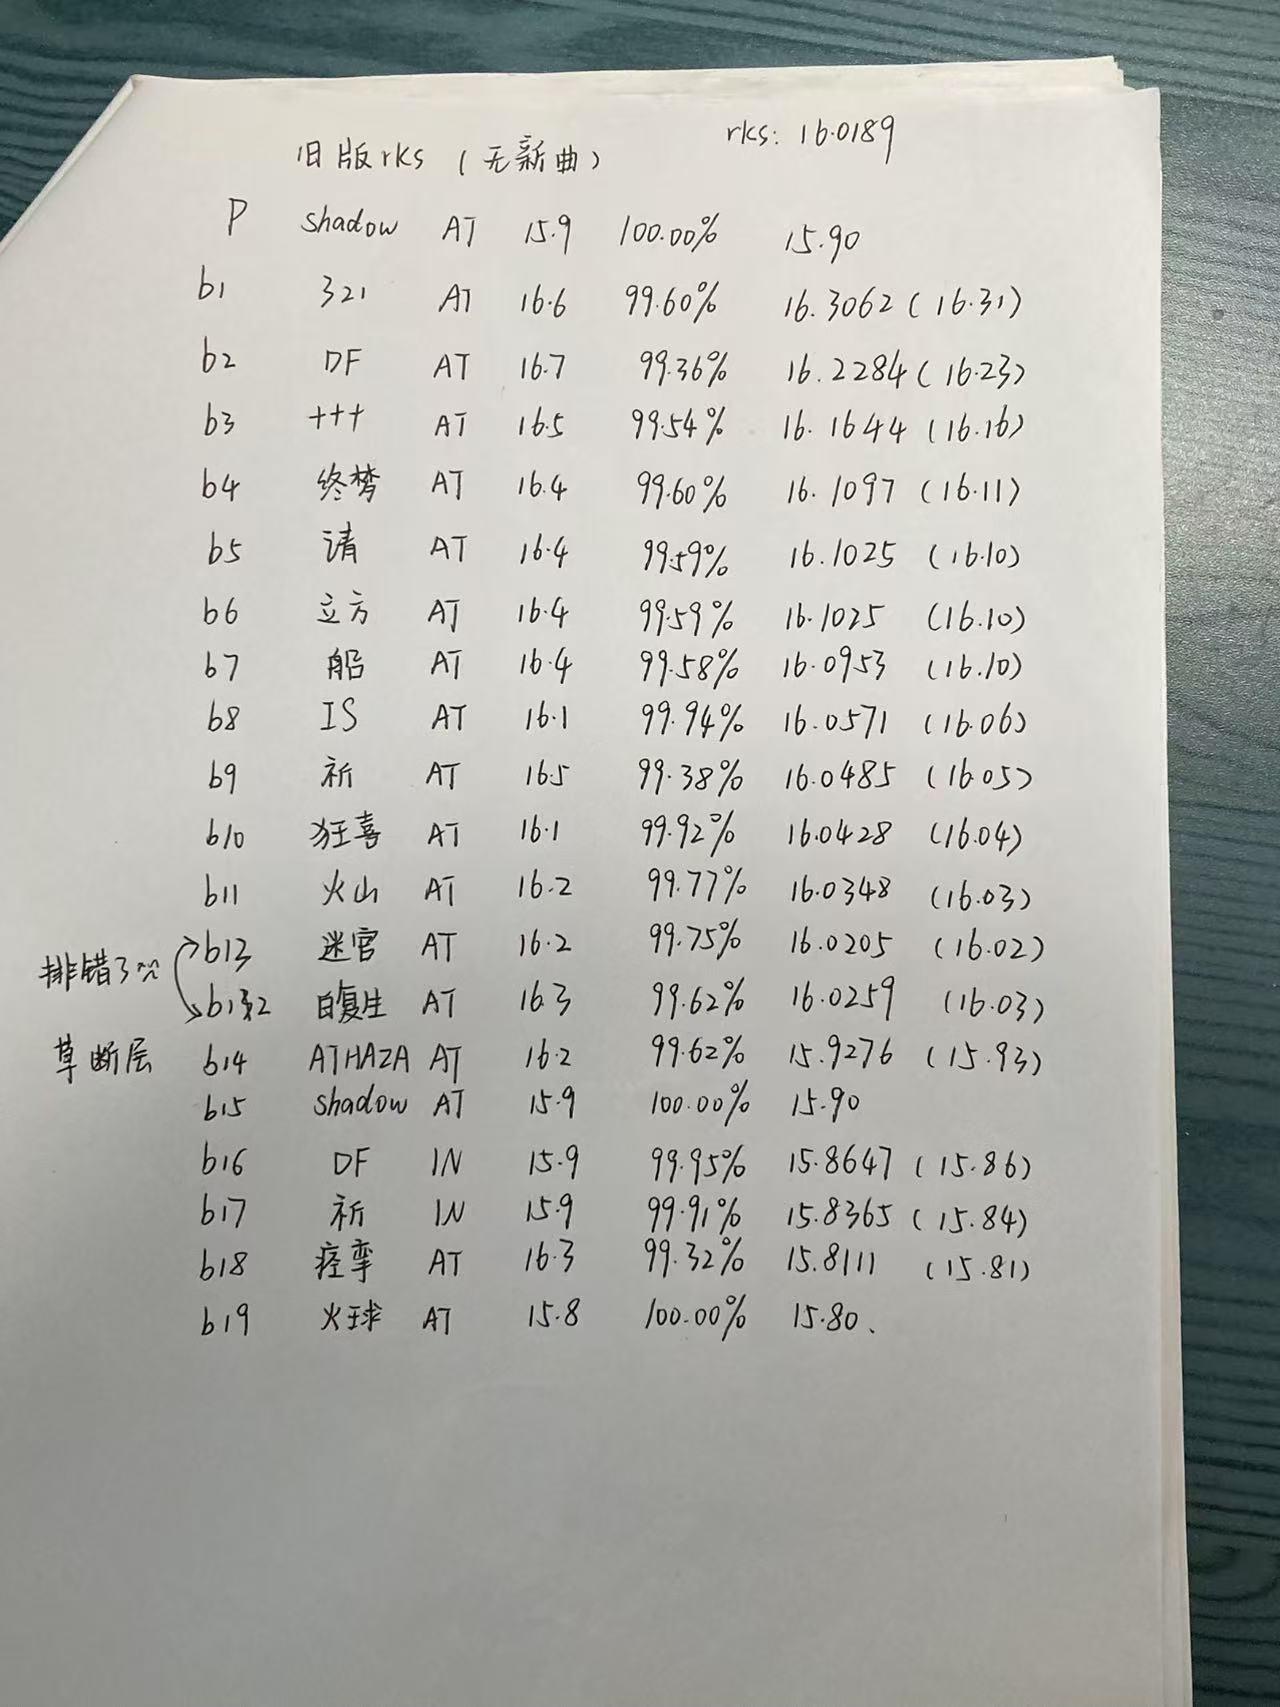 旧版rks（无新曲）
rks: 16.0189
P shadow AT 15.9 100.00% 15.90
b1 321 AT 16.6 99.60% 16.3062 (16.31)
b2 DF AT 16.7 99.36% 16.2284 (16.23)
b3 +++ AT 16.5 99.54% 16.1644 (16.16)
b4 终梦 AT 16.4 99.60% 16.1097 (16.11)
b5 请 AT 16.4 99.59% 16.1025 (16.10)
b6 立方 AT 16.4 99.59% 16.1025 (16.10)
b7 船 AT 16.4 99.58% 16.0953 (16.10)
b8 IS AT 16.1 99.94% 16.0571 (16.06)
b9 祈 AT 16.5 99.38% 16.0485 (16.05)
b10 狂喜 AT 16.1 99.92% 16.0428 (16.04)
b11 火山 AT 16.2 99.77% 16.0348 (16.03)
b13 迷宫 AT 16.2 99.75% 16.0205 (16.02)
排错了
b12 自复生 AT 16.3 99.62% 16.0259 (16.03)
草断层 b14 ATHAZA AT 16.2 99.62% 15.9276 (15.93)
b15 shadow AT 15.9 100.00% 15.90
b16 DF IN 15.9 99.95% 15.8647 (15.86)
b17 祈 IN 15.9 99.91% 15.8365 (15.84)
b18 痉挛 AT 16.3 99.32% 15.8111 (15.81)
b19 火球 AT 15.8 100.00% 15.80